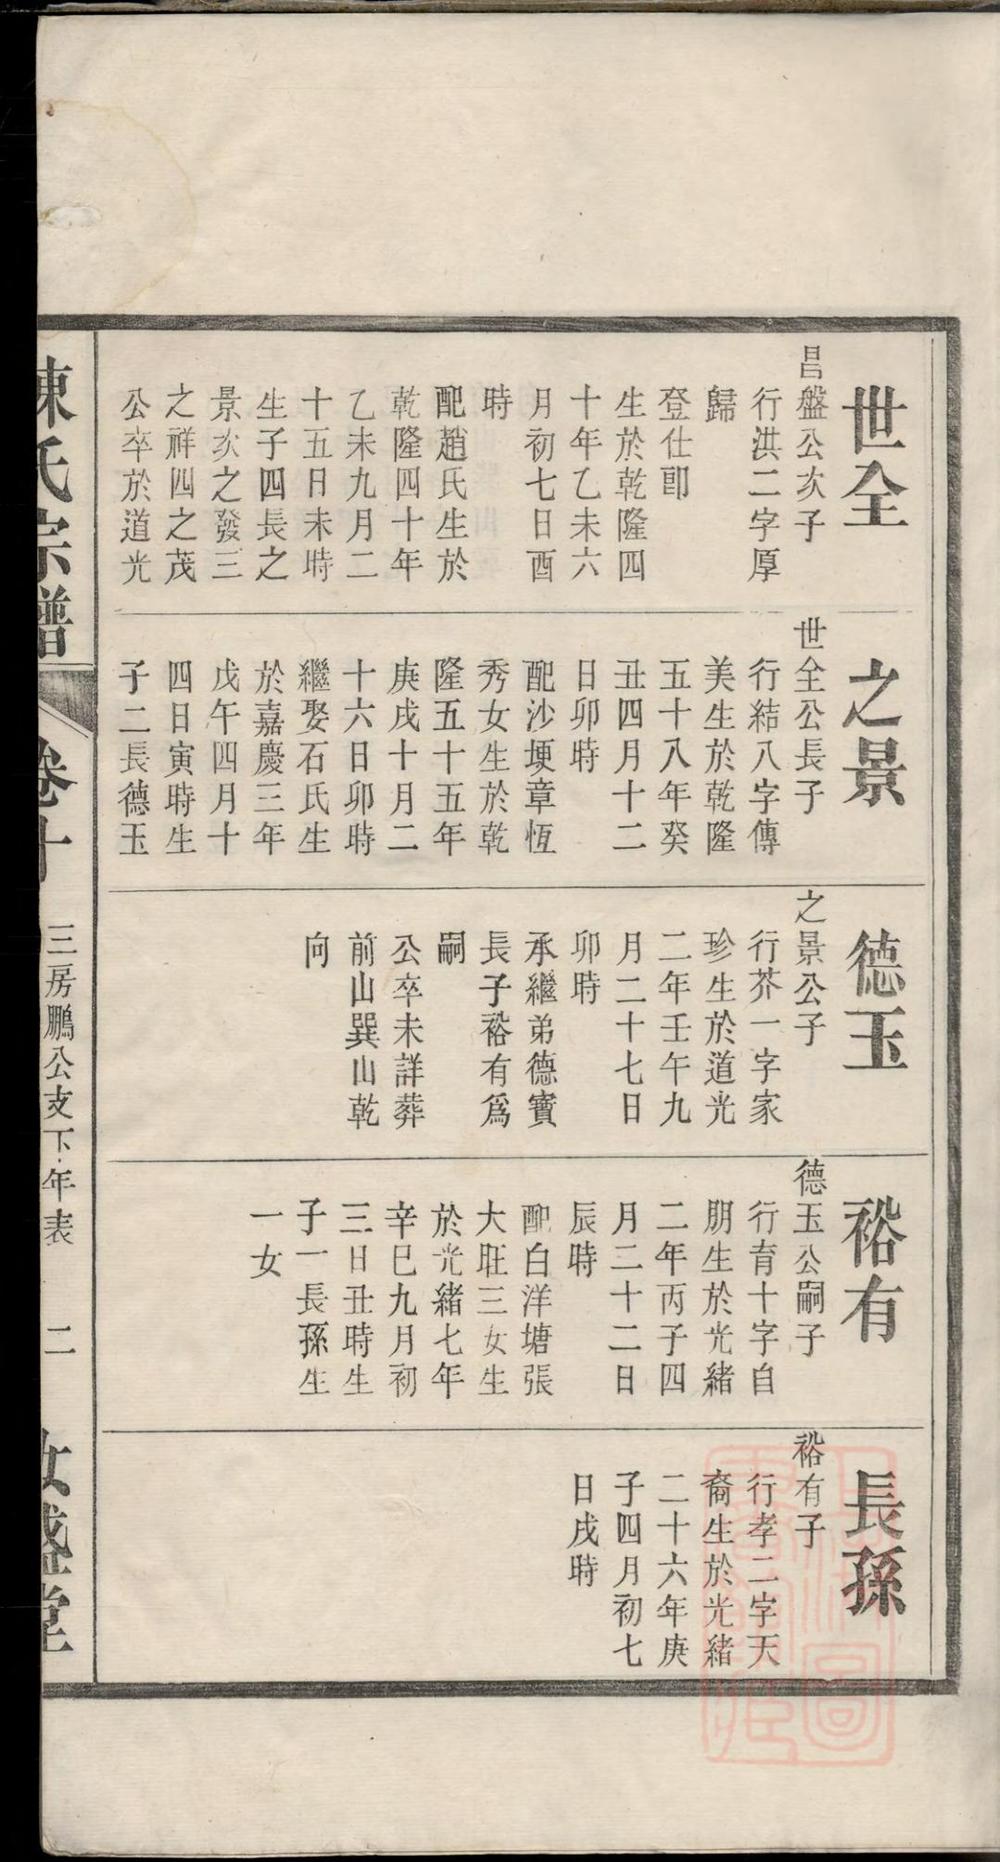 世全
昌盤公次子
行洪二字厚
歸
登仕郎
生於乾隆四
十年乙未六
月初七日酉
時
配趙氏生於
乾隆四十年
乙未九月二
十五日未時
生子四長之
景次之發三
之祥四之茂
公卒於道光
之景
世全公長子
行結八字傳
美生於乾隆
五十八年癸
丑四月十二
日卯時
配沙埂章恆
秀女生於乾
隆五十五年
庚戌十月二
十六日卯時
繼娶石氏生
於嘉慶三年
戊午四月十
四日寅時生
子二長德玉
德玉
之景公子
行芥一字家
珍生於道光
二年壬午九
月二十七日
卯時
承繼弟德寶
長子裕有爲
嗣
公卒未詳葬
前山巽山乾
向
裕有
德玉公嗣子
行育十字自
朋生於光緒
二年丙子四
月二十二日
辰時
配白洋塘張
大旺三女生
於光緒七年
辛巳九月初
三日丑時生
子一長孫生
一女
長孫
裕有子
行孝二字天
裔生於光緒
二十六年庚
子四月初七
日戌時
陳氏宗譜
卷十
三房鵬公支下年表
二
盛堂